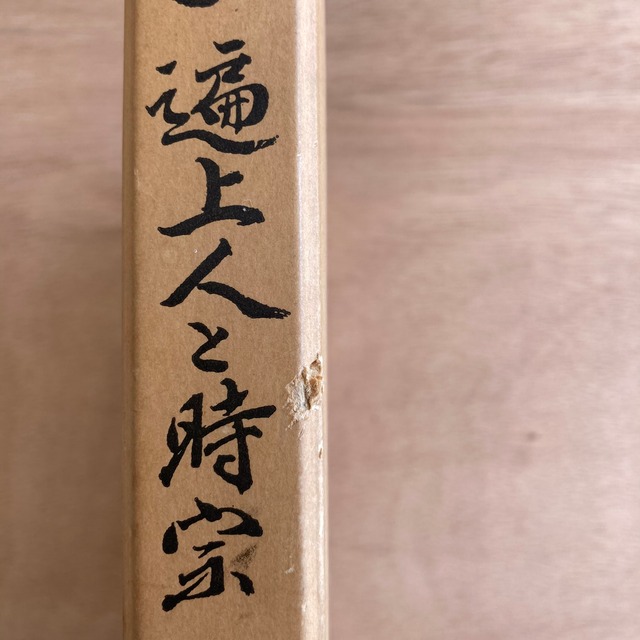 遍上人と時宗